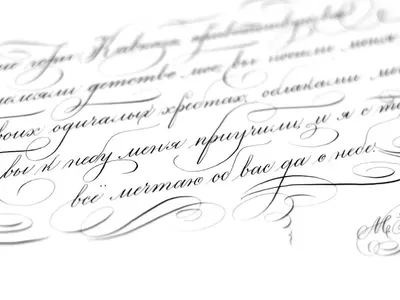 ие горы Кавказа, приветствую вас!
лелеяли детство мое, вы носили меня
воих одичалых хребтах, облаками ме
вы к небу меня приучили, и я с т
всё мечтаю об вас да о небе.